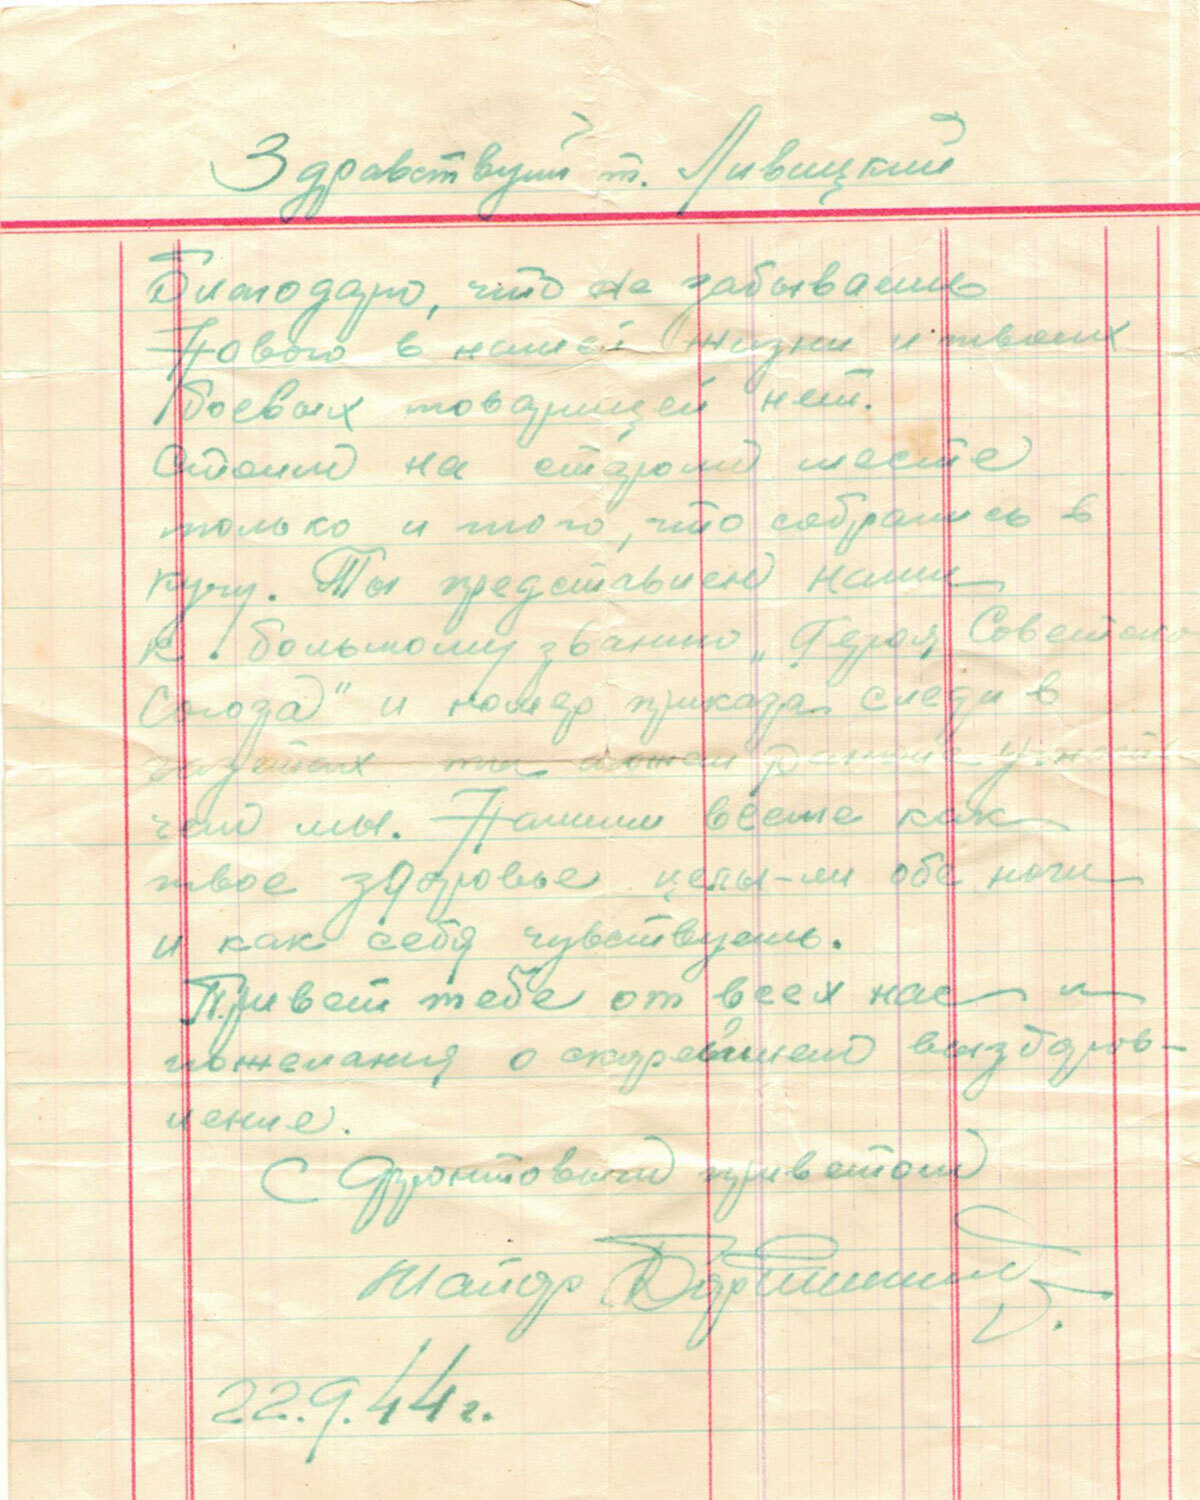 Здравствуй т. Ливицкий
Благодарю, что не забываешь
Нового в нашей жизни и твоих
боевых товарищей нет.
Стоим на старом месте
только и того, что собрались в
кучу. Ты представлен нами
к большому званию „Героя Советского
Союза" и номер приказа следи в
газетах ты может раньше узнаешь
чем мы. Напиши вёсте как
твое здоровье целы-ли обе ноги
и как себя чувствуешь.
Привет тебе от всех нас и
пожелания о скорейшем выздоров-
ление.
С фронтовым приветом
Майор
22.9.44 г.